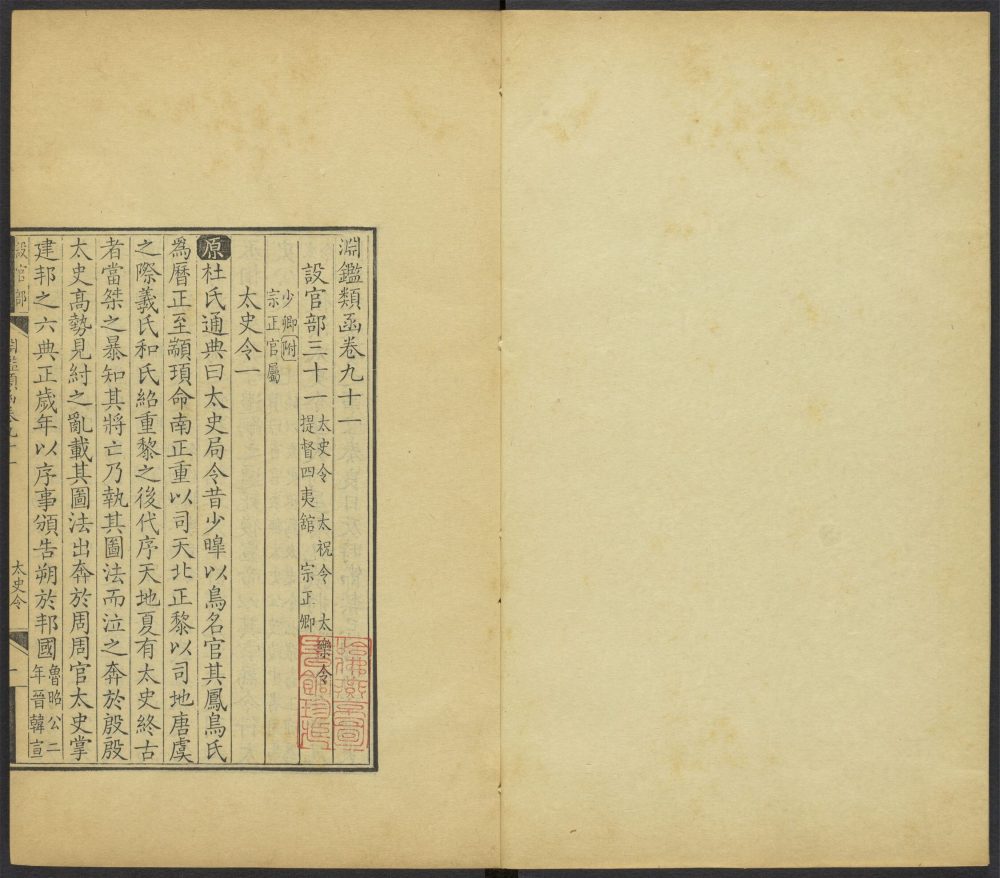 淵鑑類函卷九十一
設官部三十一 太史令 太祝令 太樂令
提督四夷館 宗正卿
少卿附
宗正官屬
太史令一
原杜氏通典曰太史局令昔少皥以鳥名官其鳳鳥氏
為曆正至顓頊命南正重以司天北正黎以司地唐虞
之際羲氏和氏紹重黎之後代序天地夏有太史終古
者當桀之暴知其將亡乃執其圖法而泣之奔於殷殷
太史高勢見紂之亂載其圖法出奔於周周官太史掌
建邦之六典正歲年以序事頒告朔於邦國 魯昭公二
年晉韓宣
設官部
淵鑑類函卷九十一
太史令
一
哈佛燕京圖
書館珍藏